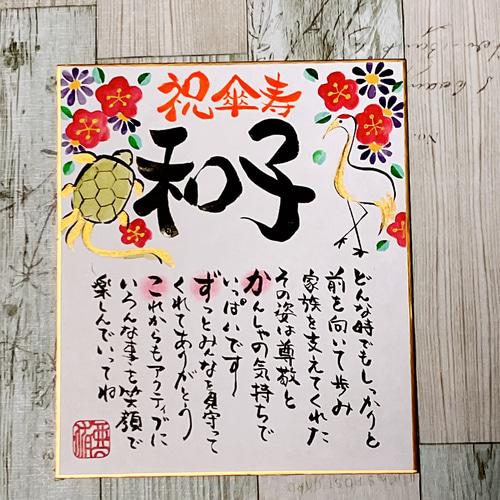 祝傘寿
和子
どんな時でもしっかりと
前を向いて歩み
家族を支えてくれた
その姿は尊敬と
かんしゃの気持ちで
いっぱいです
ずっとみんなを見守って
くれてありがとう
これからもアクティブに
いろんな事を笑顔で
楽しんでいってね